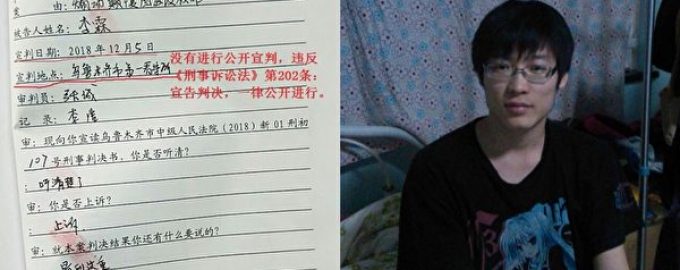 由：煽动颠覆国家政权
被告人姓名：李霖
宣判日期：2018年12月5日
宣判地点：乌鲁木齐市第一看守所
没有进行公开宣判，违反
《刑事诉讼法》第202条：
宣告判决，一律公开进行。
审判员：
记 录：李
审：现向你宣读乌鲁木齐市中级人民法院（2018）新01刑初
107号刑事判决书，你是否听清？
：听清楚了
审：你是否上诉？
：上诉
审：就本案判决结果你还有什么要说的？